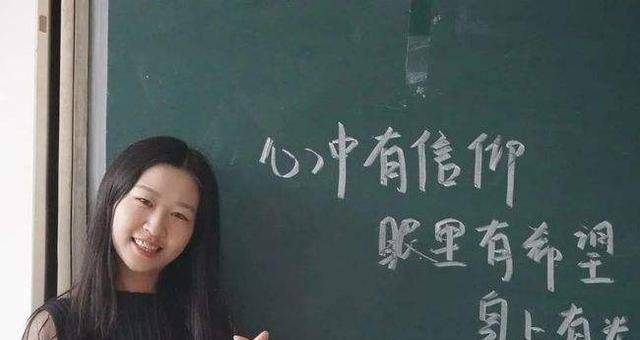 心中有信仰
眼里有希望
身上有